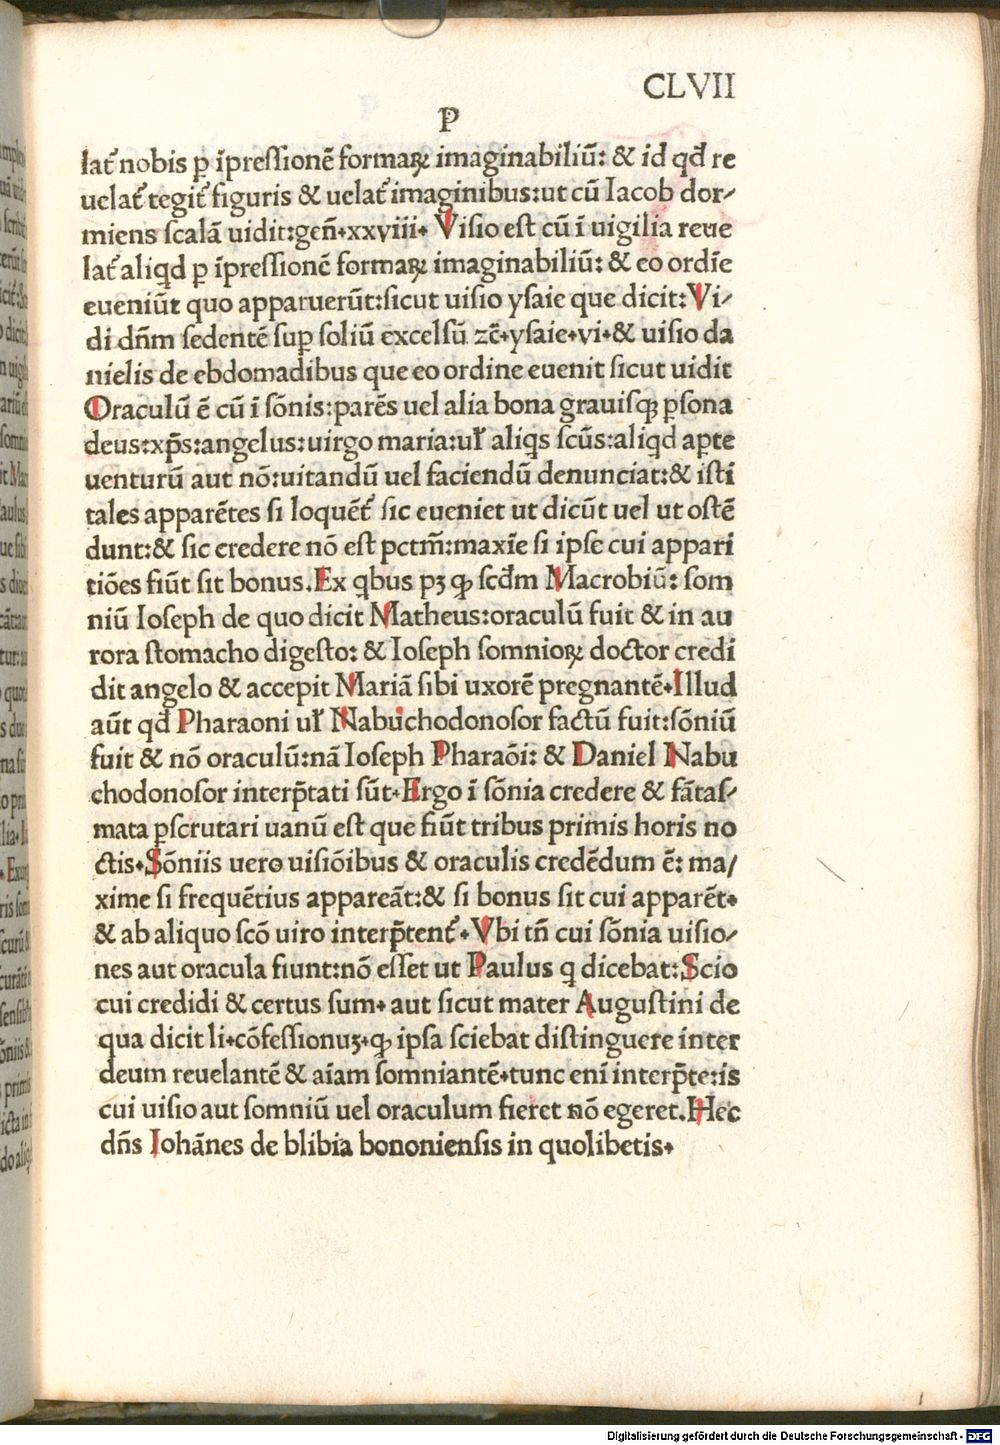 CLVII
P
lat᷑ nobis ꝑ īpreſſionē formaꝝ imaginabiliū: & id qđ re
uelat᷑ tegit᷑ figuris & uelat᷑ imaginibus:ut cū Iacob dor⸗
miens ſcalā uidit:geñ.xxviii. Viſio eſt cū ī uigilia reue
lat᷑ aliqd ꝑ īpreſſionē formaꝝ imaginabiliū: & eo ordīe
eueniūt quo apparuerūt:ſicut uiſio yſaie que dicit:Vi⸗
di dñm ſedentē ſuꝑ ſoliū excelſū zc̄.yſaie.vi.& uiſio da
nielis de ebdomadibus que eo ordine euenit ſicut uidit
Oraculū ē cū ī ſōnis:parēs uel alia bona grauiſqꝫ ꝑſona
deus:xp̄s:angelus:uirgo maria:ul᷑ aliqs ſcūs:aliqd aꝑte
uenturū aut nō:uitandū uel faciendū denunciat:& iſti
tales apparētes ſi loquēt᷑ ſic eueniet ut dicūt uel ut oſtē
dunt:& ſic credere nō eſt pctm̄:maxīe ſi ipſe cui appari
tiōes fiūt ſit bonus.Ex qbus pꝫ ꝙ ſcd̄m Macrobiū: ſom
niū Ioſeph de quo dicit Matheus:oraculū fuit & in au
rora ſtomacho digeſto: & Ioſeph ſomnioꝝ doctor credi
dit angelo & accepit Mariā ſibi uxorē pregnantē.Illud
aūt qđ Pharaoni ul᷑ Nabuchodonoſor factū fuit:ſōniū
fuit & nō oraculū:nā Ioſeph Pharaōi: & Daniel Nabu
chodonoſor interp̄tati ſūt.Ergo ī ſōnia credere & fātaſ⸗
mata ꝑſcrutari uanū eſt que fiūt tribus primis horis no
ctis.Sōniis uero uiſiōibus & oraculis credēdum ē: ma⸗
xime ſi frequētius appareāt:& ſi bonus ſit cui apparēt.
& ab aliquo ſcō uiro interp̄tent᷑.Vbi tñ cui ſōnia uiſio⸗
nes aut oracula fiunt:nō eſſet ut Paulus q dicebat:Scio
cui credidi & certus ſum. aut ſicut mater Auguſtini de
qua dicit li.cōfeſſionuꝫ.ꝙ ipſa ſciebat diſtinguere inter
deum reuelantē & aīam ſomniantē.tunc enī interp̄te:is
cui uiſio aut ſomniū uel oraculum fieret nō egeret.Hec
dñs Iohānes de blibia bononienſis in quolibetis.
Digitalisierung gefördert durch die Deutsche Forschungsgemeinschaft - DFG